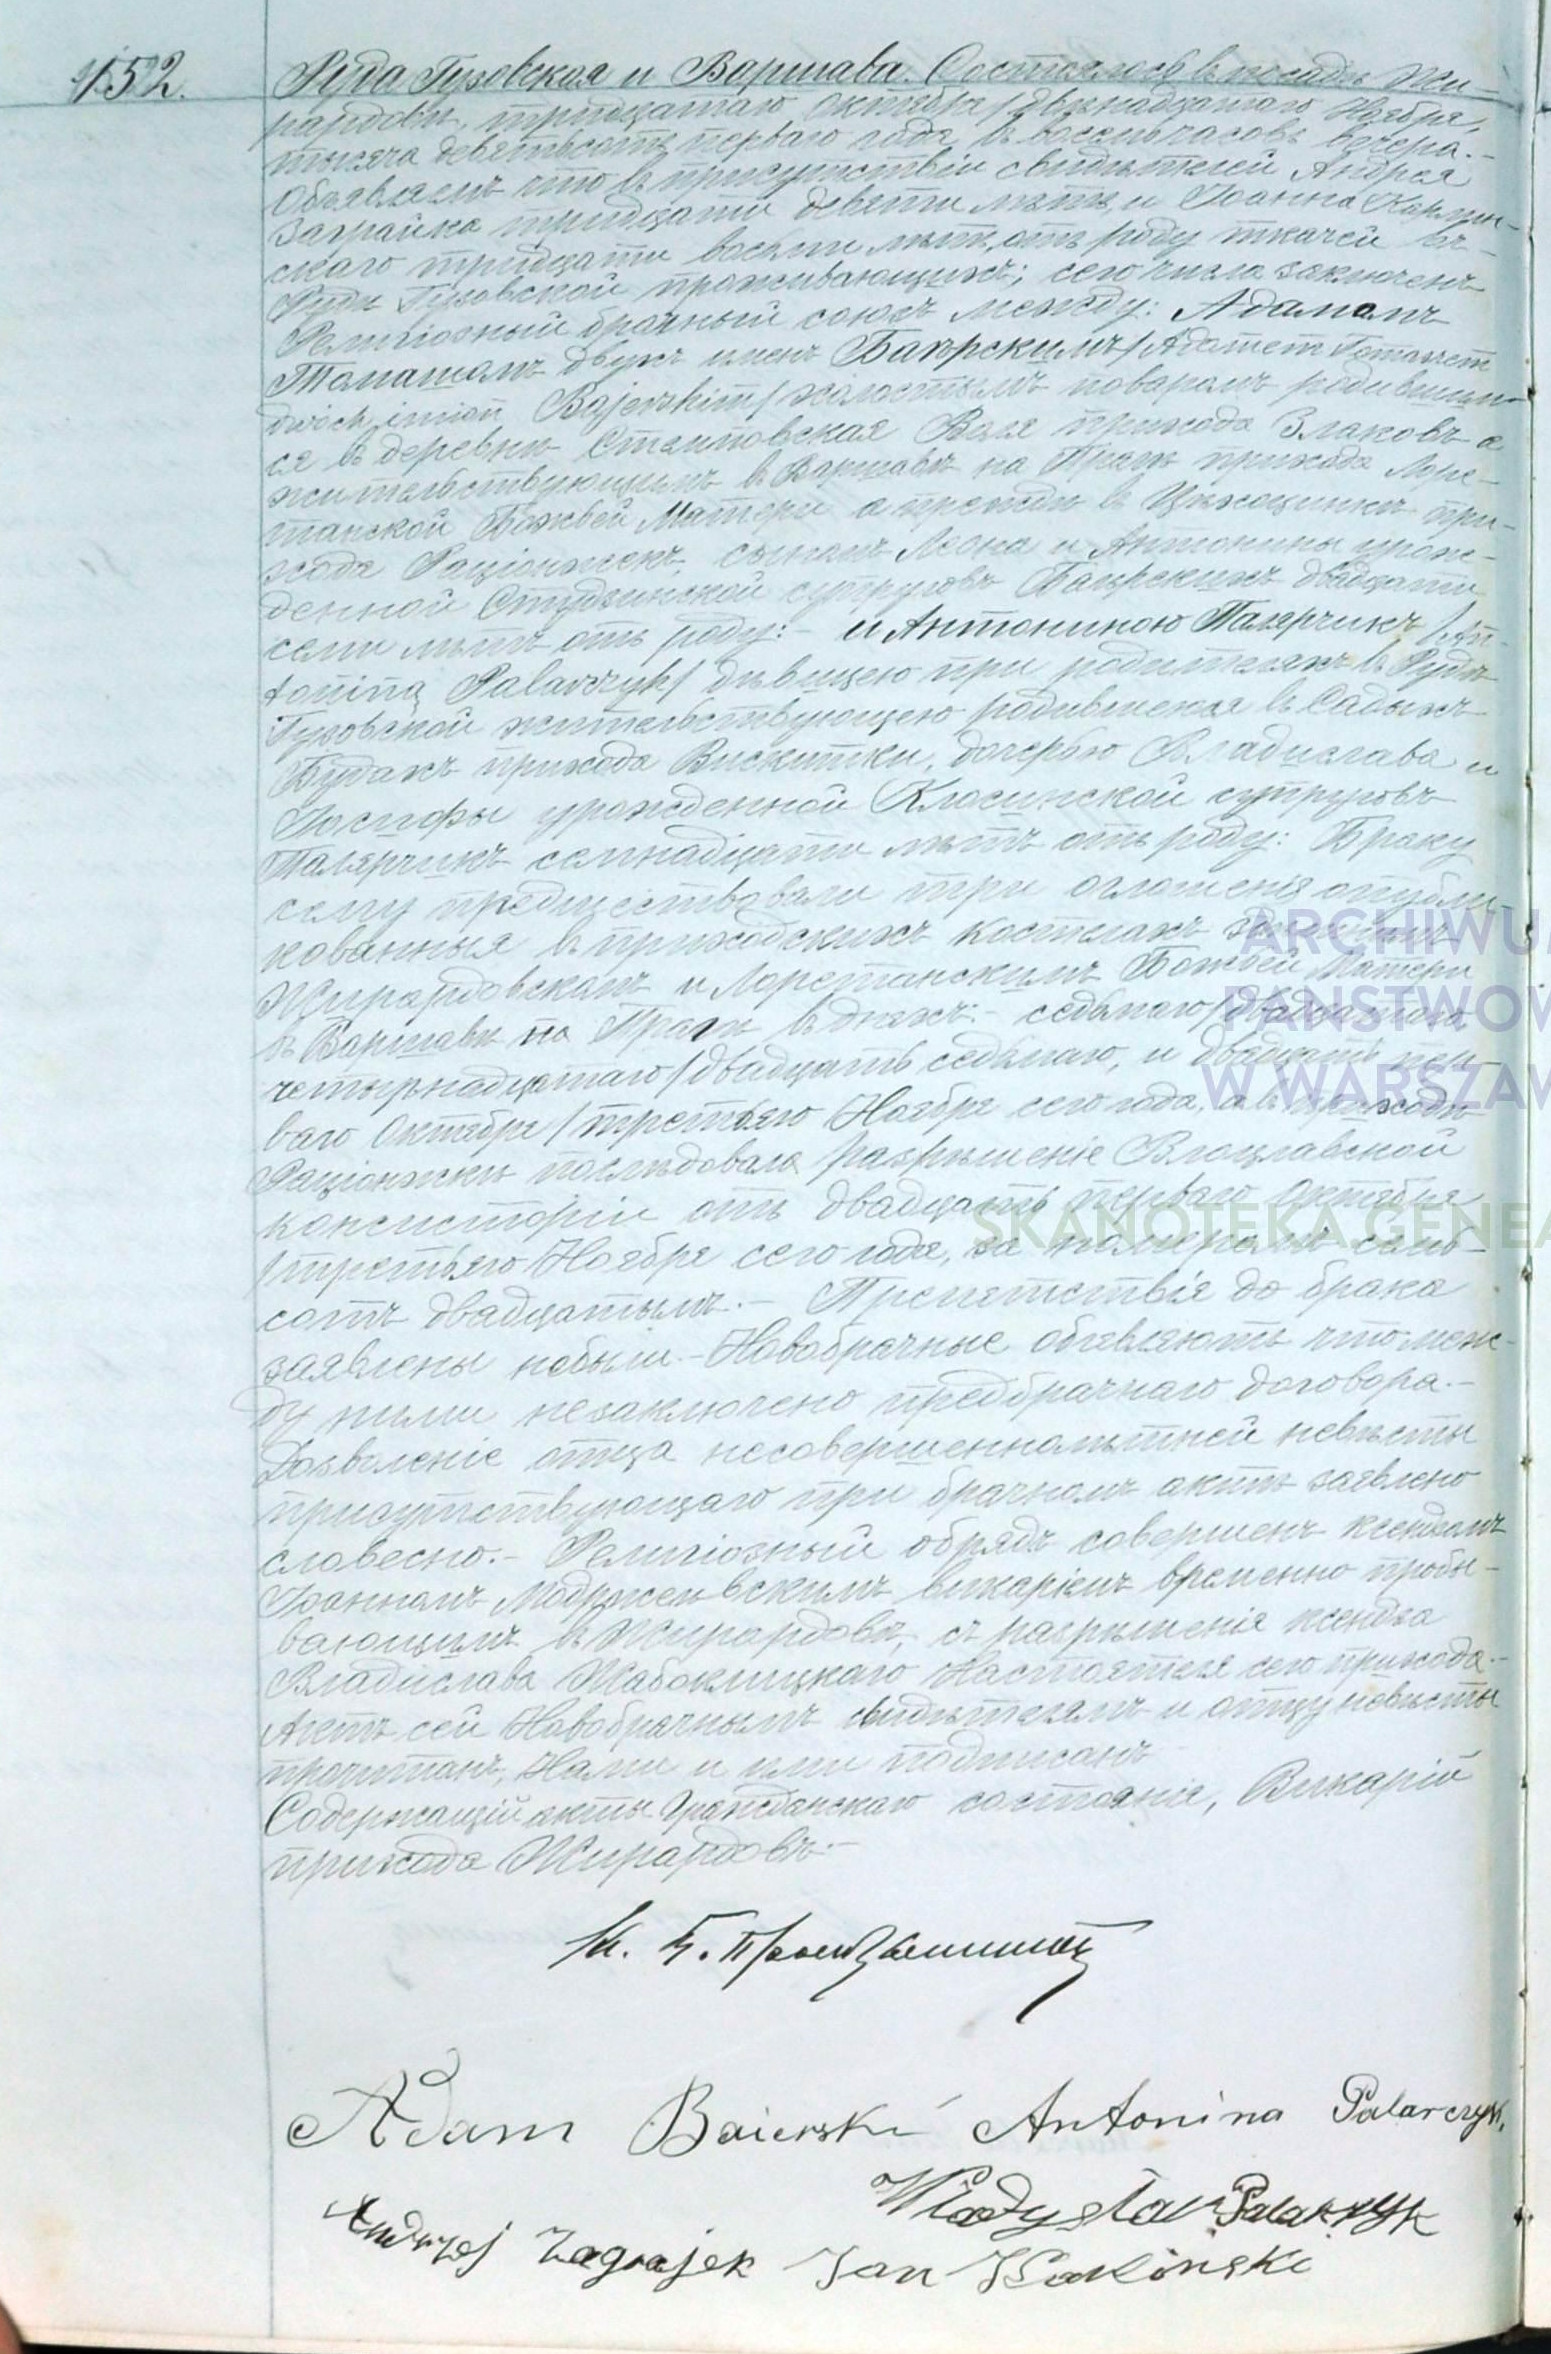 152.
Руда Гузовская и Варшава. Состоялось в посадѣ Жи-
рардовѣ, тридцатаго Октября/двѣнадцатаго Ноября,
тысяча девятьсотъ перваго года, в восемь часовъ вечера.-
Объявляемъ что в присутствіи свидѣтелей Андрея
Заграйка тридцати девяти лѣтъ, и Іоанна
скаго тридцати восьми лѣтъ, отъ роду ткачей въ
Рудѣ Гузовской проживающихъ; сего числа заключенъ
Религіозный брачный союзъ между: Адамомъ
Томашомъ двухъ именъ Баѣрскимъ/Adamem Tomaszem
dwóch imion Bajerskim/ холостымъ поваромъ родившим-
ся в деревни Воля прихода Злаковъ а
жительствующимъ в Варшавѣ на Прагѣ прихода Лоре-
танской Божьей Матери а прежде в Цѣхоцинкѣ при-
хода Раціонжекъ, сыномъ Леона и Антонины урож-
денной Студзинской супруговъ Баѣрскихъ двадцати
семи лѣтъ отъ роду:- и Антониною Палярчикъ /An-
toniną Palarczyk/ дѣвицею при родителяхъ в Рудѣ
Гузовской жительствующею родившеюся в Садыхъ
Будахъ прихода Вискитки, дочерью Владислава и
Іосифы урожденной Клосинской супруговъ
Палярчикъ семнадцати лѣтъ отъ роду: Браку
сему предшествовали три оглашенія опубли-
кованныя в приходскихъ костелахъ
Жирардовскомъ и Лоретанскимъ Божьей Матери
в Варшавѣ на Прагѣ в дняхъ:- седьмаго/двадцатаго
четырнадцатаго/двадцать седьмаго, и двадцать пер-
ваго Октября/третьяго Ноября сего года, а в приходѣ
Раціонжки послѣдовало разрѣшеніе Влоцлавской
консисторіи отъ двадцать перваго Октября
/третьяго Ноября сего года, за номеромъ семь-
сотъ двадцатымъ.- Препятствія до брака
заявлены небыли.- Новобрачные объявляютъ что меж-
ду ними незаключено предбрачнаго договора.-
Дозволеніе отца несовершеннолѣтней невѣсты
присутствующаго при брачномъ актѣ заявлено
словесно.- Религіозный обрядъ совершенъ ксендзомъ
Іоанномъ Моджеевскимъ викаріемъ временно пробы-
вающимъ в Жирардовѣ, съ разрѣшенія ксендза
Владислава Жабоклицкаго Настоятеля сего прихода.-
Актъ сей Новобрачнымъ свидѣтелямъ и отцу невѣсты
прочитанъ, Нами и ими подписанъ
Содержащій акты Гражданскаго состоянія, Викарій
прихода Жирардовъ:-
Adam Baierski Antonina Palarczyk.
Władysław Palarczyk
Andrzej Zagrajek Jan
ARCHIWUM
PAŃSTWOW
W WARSZAW
SKANOTEKA.GENEA